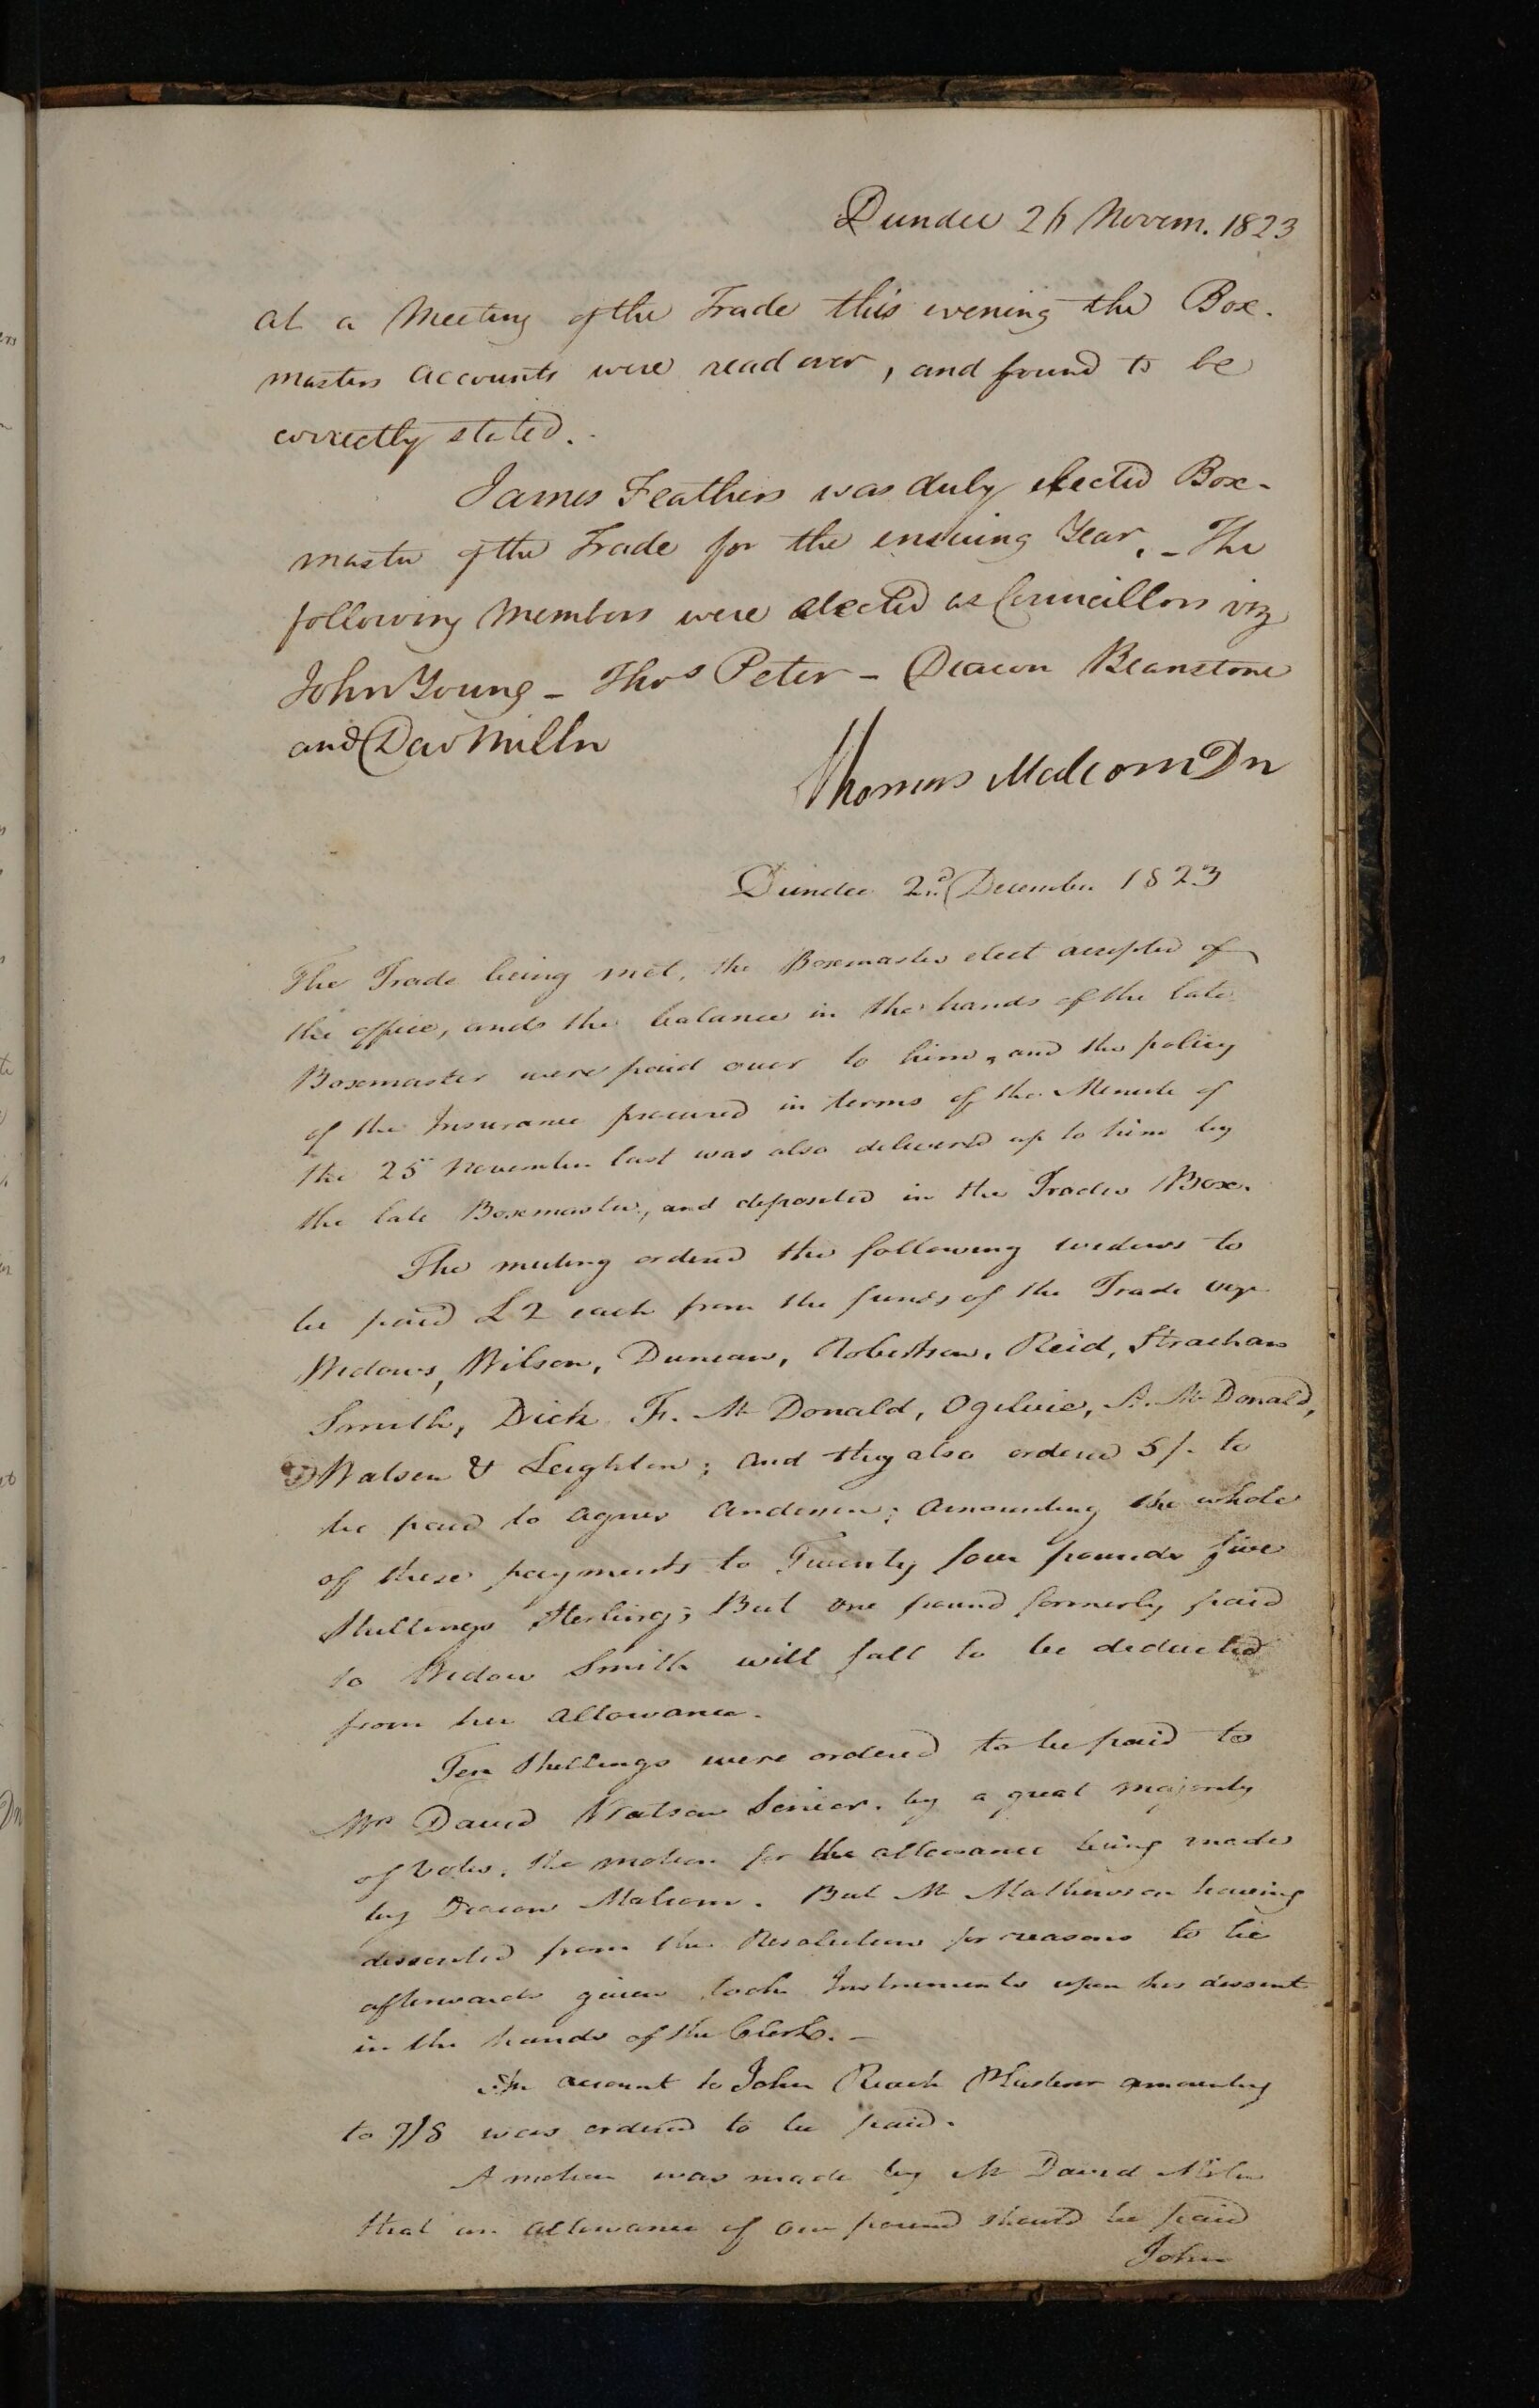 Dundee 26 Novem. 1823
At a Meeting of the Trade this evening the Box-
masters Accounts were read over, and found to be
correctly stated.
James Feathers was duly elected Box-
master of the Trade for the ensuing Year. - The
following Members were elected as Councillors viz
John Young - Thos Peter - Deacon Beanstone
and Dav Milln
Thomas Malcom Dn
Dundee 2nd December 1823
The Trade being met, the Boxmaster elect accepted of
the office, and the balance in the hands of the late
Boxmaster were paid over to him, and the policy
of the Insurance procured in terms of the Minute of
the 25 November last was also delivered up to him by
the late Boxmaster, and deposited in the Trades Box.
The meeting ordered the following widows to
be paid £2 each from the funds of the Trade viz
Widows, Wilson, Duncan, Robertson, Reid, Strachan
Smith, Dick F. Mc Donald, Ogilvie, A. Mc Donald,
Watson & Leighton; and they also ordered 5/- to
be paid to Agnes Anderson; Amounting the whole
of these payments to Twenty four pounds five
Shillings Sterling; But one pound formerly paid
to Widow Smith will fall to be deducted
from her allowance.
Ten Shillings were ordered to be paid to
Mr David Watson Senior, by a great majority
of Votes, the motion for the allowance being made
by Deacon Malcom. But Mr Mathewson having
dissented from the Resolution for reasons to be
afterwards given took Instruments upon his dissent
in the hands of the Clerk. -
An account to John Roach Plasterer amounting
to 7/8 was ordered to be paid.
A motion was made by Mr David Miln
that an allowance of one pound should be paid
John